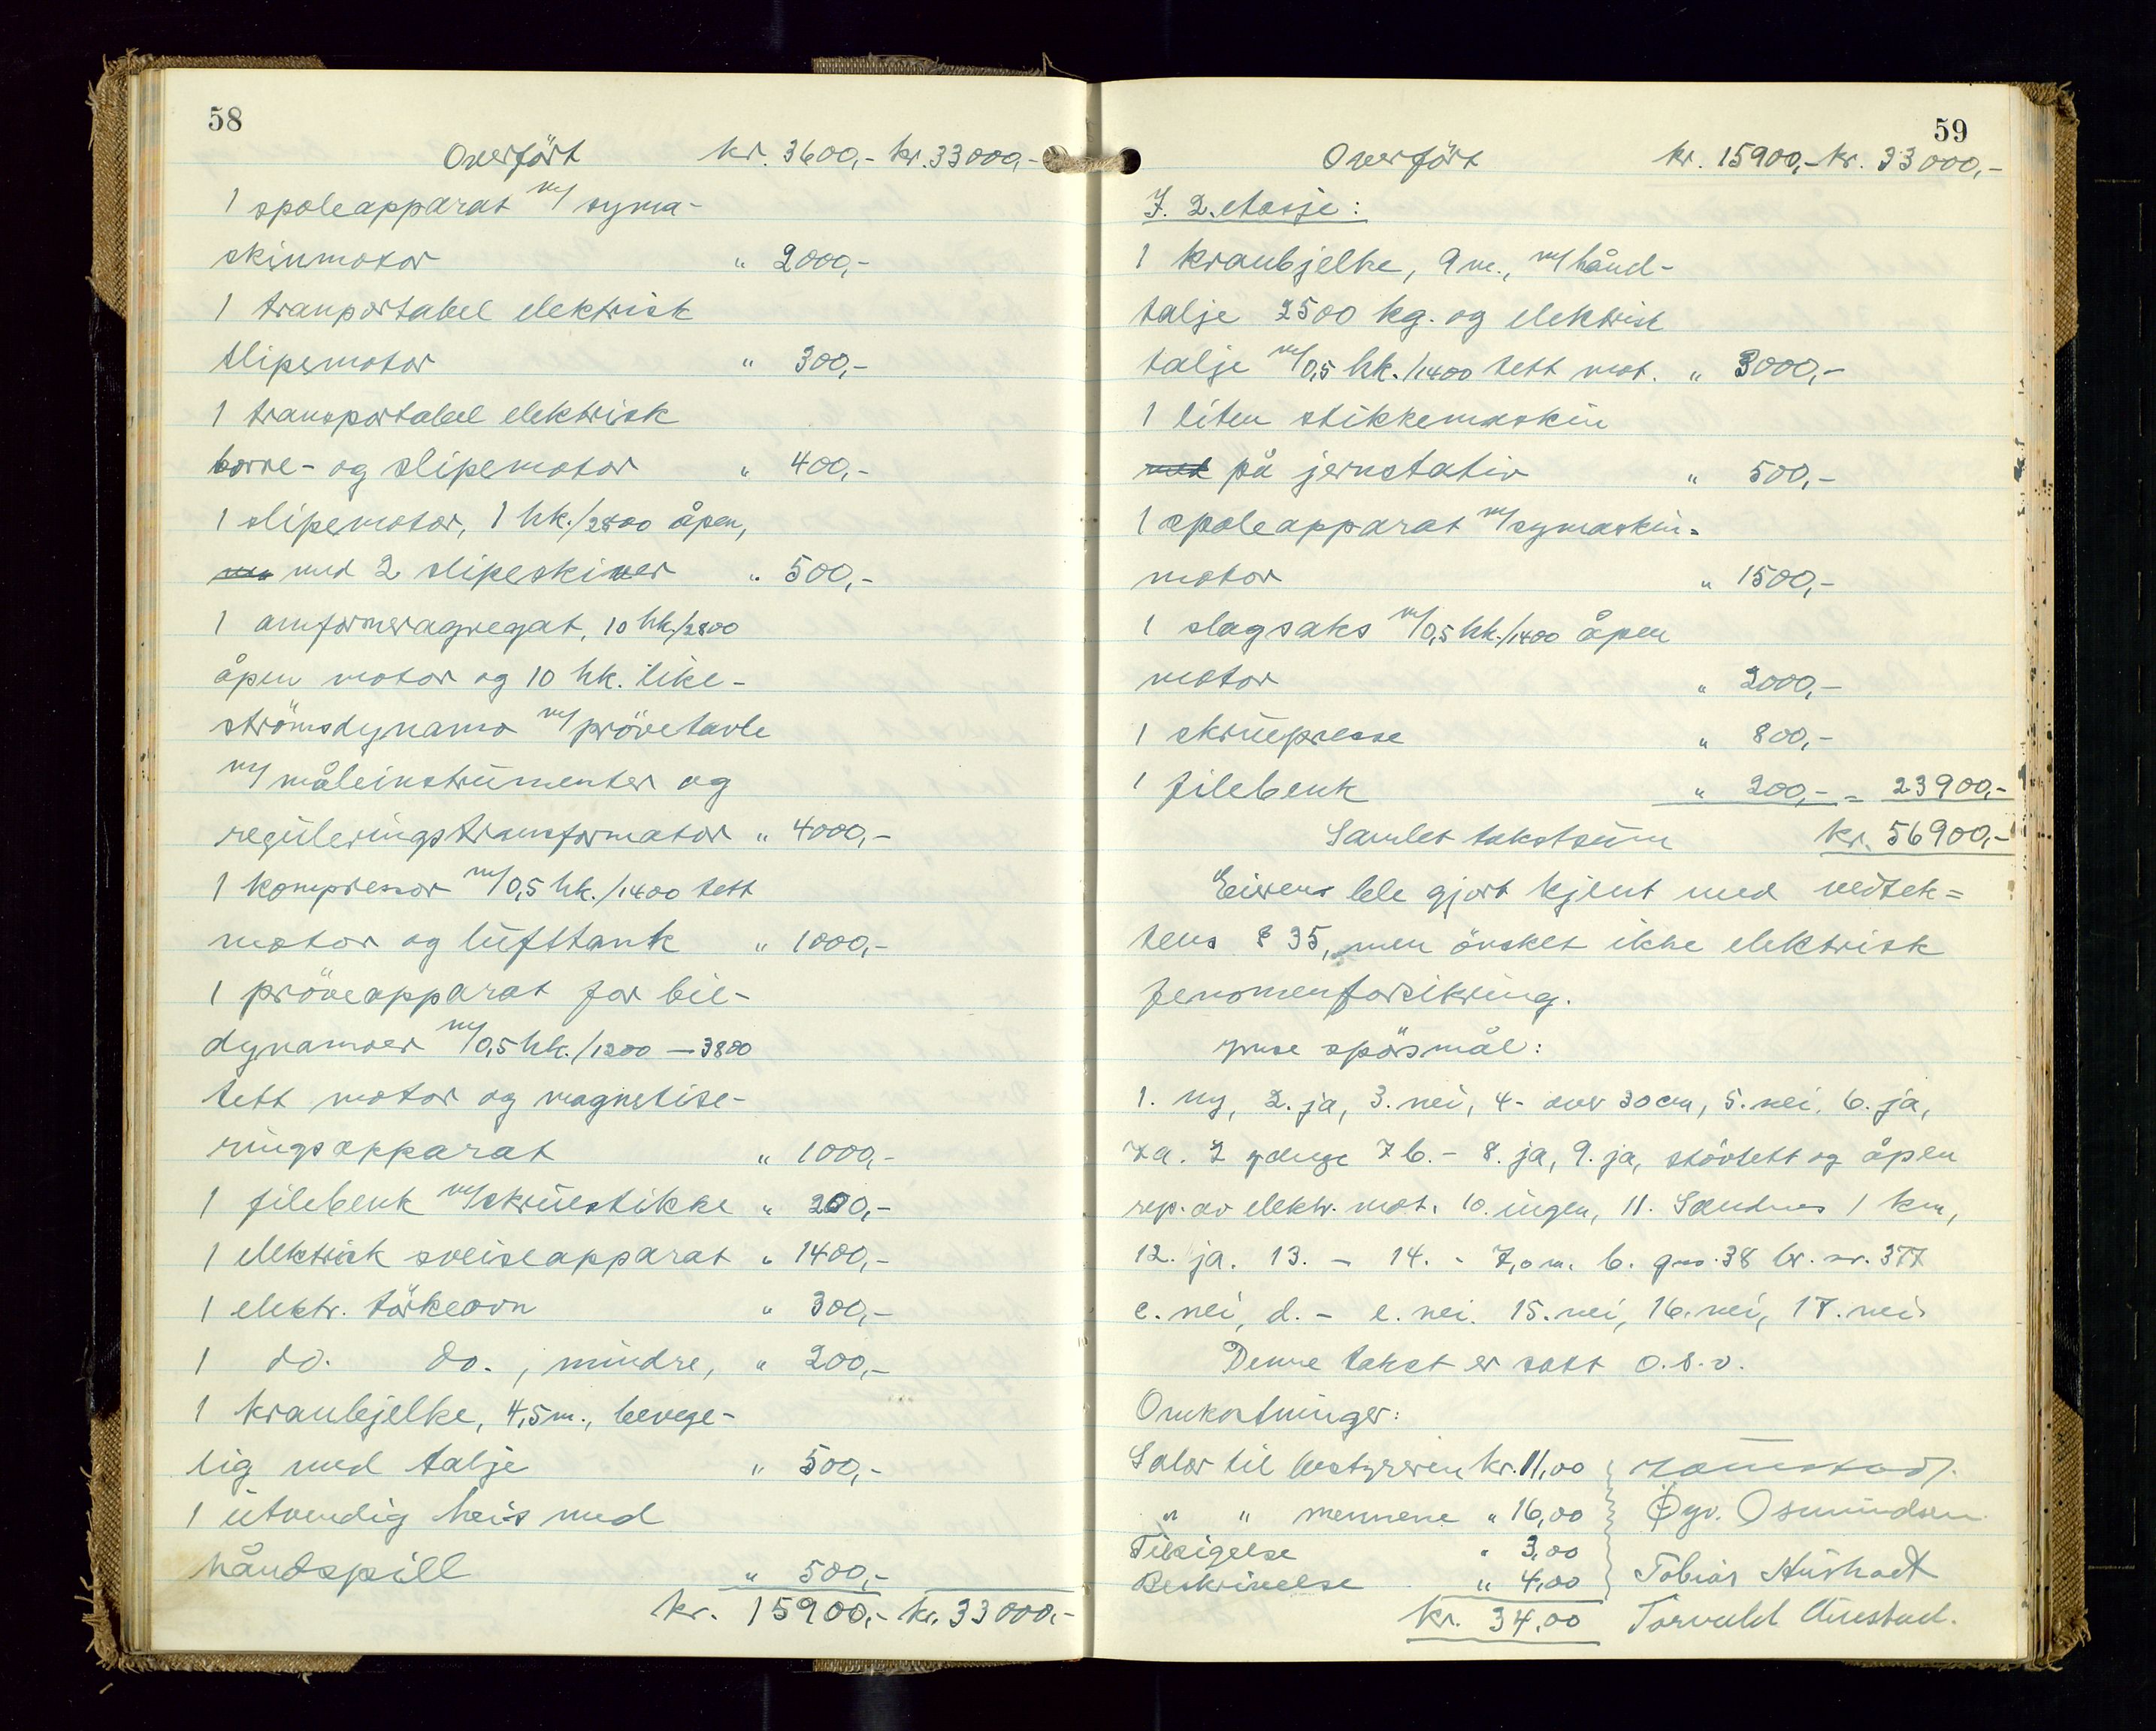 58
Overført kr. 3600,- kr. 33000,-
1 spoleapparat m/ syma-
skinmotor " 2000,-
1 tranportabel elektrisk
slipemotor " 300,-
1 transportabel elektrisk
borre- og slipemotor " 400,-
1 slipemotor, 1 hk./2800 åpen,
med 2 slipeskiver " 500,-
1 omformeragregat, 10 hk/2800
åpen motor og 10 hk. like-
strömsdynamo m/ prövetavle
m/ måleinstrumenter og
reguleringstransformator " 4000,-
1 kompressor m/ 0,5 hk./1400 tett
motor og lufttank " 1000,-
1 pröveapparat for bil-
dynamoer m/ 0,5 hk./1200 - 3800
tett motor og magnetise-
ringsapparat " 1000,-
1 filebenk m/ skruestikke " 200,-
1 elektrisk sveiseapparat " 1400,-
1 elektr. törkeovn " 300,-
1 do. do., mindre, " 200,-
1 kranbjelke, 4,5 m., bevege-
lig med talje " 500,-
1 utvendig heis med
håndspill " 500,-
kr. 15900,- kr. 33000,-
59
Overfört kr. 15900,- kr. 33000,-
I. 2. etasje:
1 kranbjelke, 9 m., m/ hånd-
talje 2500 kg. og elektrisk
talje m/ 0,5 hk./1400 tett mot. " 3000,-
1 liten stikkemaskin
med på jernstativ " 500,-
1 spoleapparat m/ symaskin=
motor " 1500,-
1 slagsaks m/ 0,5 hk./1400 åpen
motor " 2000,-
1 skruepresse " 800,-
1 filebenk " 200,- = 23900,-
Samlet takstsum kr. 56900,-
Eieren ble gjort kjent med vedtek=
tens § 35, men önsket ikke elektrisk
fenomenforsikring.
spörsmål:
1. ny, 2. ja, 3. nei, 4. over 30 cm, 5. nei, 6. ja,
7a. 2 7b. - 8. ja, 9. ja, stövtett og åpen
rep. av elektr. mot. 10. ingen, 11. Sandnes 1 km,
12. ja. 13. - 14. - 7,0 m. b. gnr. 38 br. nr. 377
c. nei, d. - e. nei. 15. nei, 16. nei, 17. nei.
Denne takst er satt o.s.v.
Omkostninger:
Salær til bestyreren kr. 11,00
" " mennene " 16,00 Øyv. Osmundsen
Tilsigelse " 3,00
Beskrivelse " 4,00 Tobias
kr. 34,00 Torvald Aurstad.